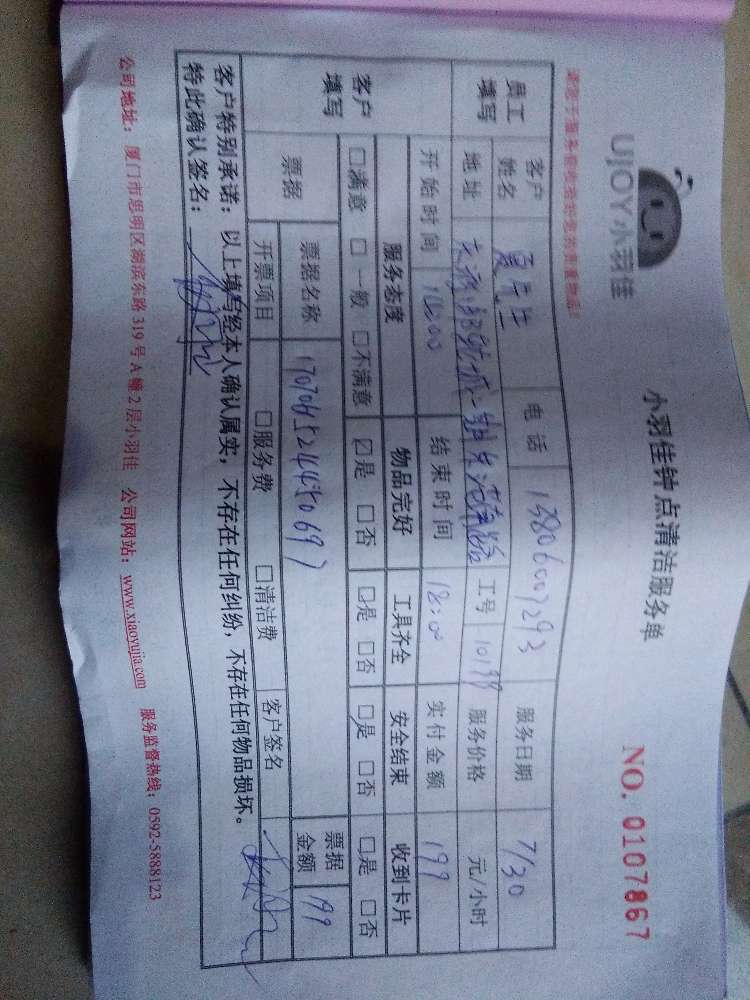 UJOY小羽佳
小羽佳钟点清洁服务单
NO. 0107867
员工填写 客户姓名 夏先生 电话 13806007293 服务日期 7/30
地址 工号 10198 服务价格 元/小时
开始时间 结束时间 18:00 实付金额 199
客户填写 服务态度 物品完好 工具齐全 安全结束 收到卡片
□满意 □一般 □不满意 ☑是 □否 □是 □否 □是 □否 □是 □否
票据 票据名称 票据金额 199
开票项目 □服务费 □清洁费 客户签名
客户特别承诺：以上填写经本人确认属实，不存在任何纠纷，不存在任何物品损坏。
特此确认签名：
公司地址：厦门市思明区湖滨东路319号A幢2层小羽佳 公司网站：www.xiaoyujia.com 服务监督热线：0592-5888123